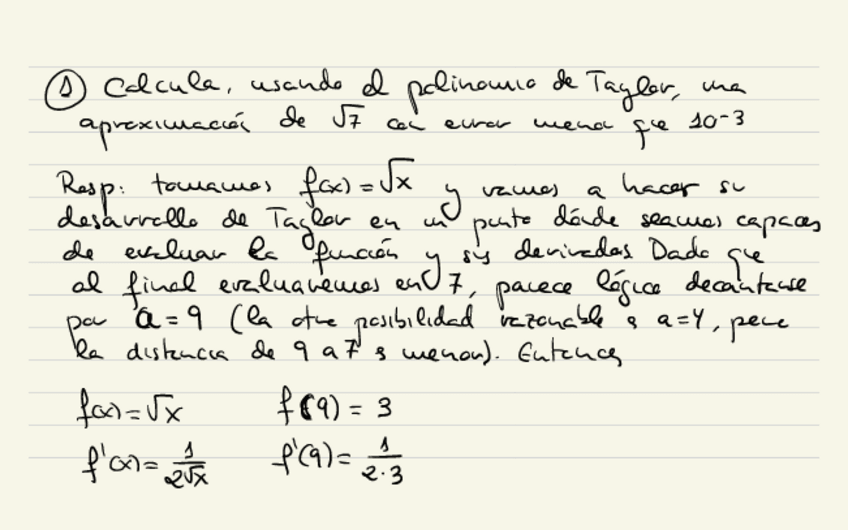 ① Calcula, usando el polinomio de Taylor, una
aproximación de √7 con error menor que 10⁻³
Resp: tomamos f(x) = √x y vamos a hacer su
desarrollo de Taylor en un punto dónde seamos capaces
de evaluar la función y sus derivadas. Dado que
al final evaluaremos en 7, parece lógico decantarse
por a = 9 (la otra posibilidad razonable es a=4, pero
la distancia de 9 a 7 es menor). Entonces
f(x) = √x f(9) = 3
f'(x) = 1/(2√x) f'(9) = 1/(2·3)